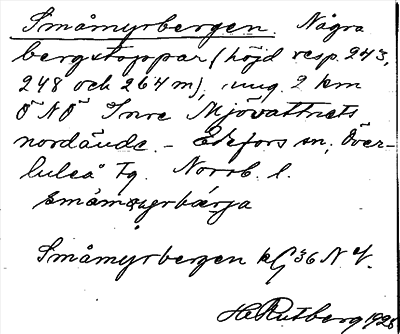 Småmyrbergen. Några
bergstoppar (höjd resp. 243,
248 och 264 m), ung. 2 km
ÖNÖ Inre Mjövattnets
nordände. - Edefors sn, Över-
luleå Tg. Norrb. l.
småmyrbärja
Småmyrbergen kG 36 N
HERutberg 1926